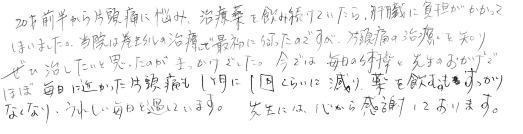 20才前半から片頭痛に悩み、治療薬を飲み続けていたら、肝臓に負担がかかって
しまいました。当院は巻き爪の治療で最初に伺ったのですが、片頭痛の治療も知り
ぜひ治したいと思ったのがきっかけでした。今では毎日の体操と先生のおかげで
ほぼ毎日に近かった片頭痛も1ヶ月に1回くらいに減り、薬を飲む すっかり
なくなり、うれしい毎日を過しています。先生には、心から感謝しております。